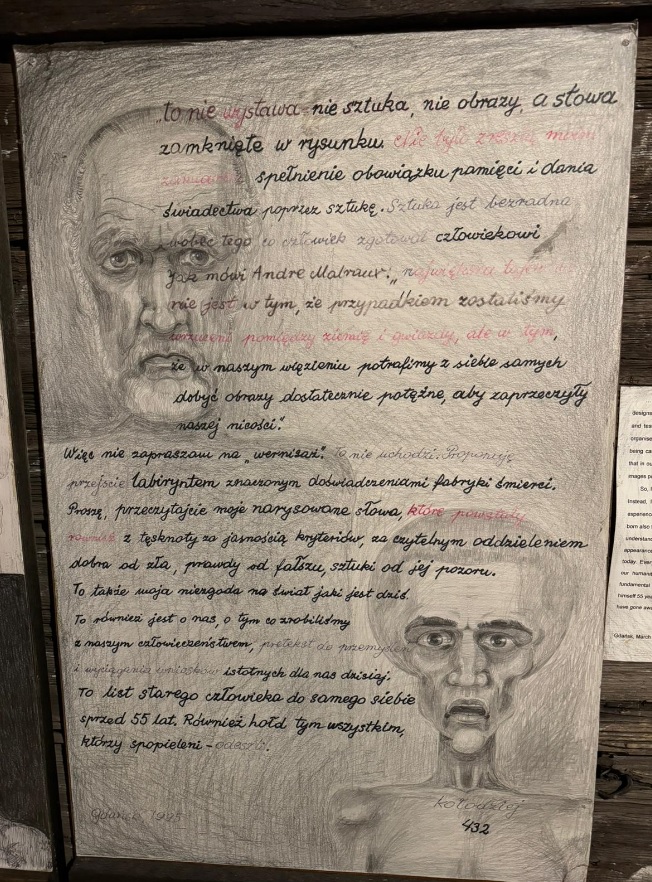 „to nie wystawa - nie sztuka, nie obrazy, a słowa
zamknięte w rysunku. Nie było zresztą moim
zamiarem spełnienie obowiązku pamięci i dania
świadectwa poprzez sztukę. Sztuka jest bezradna
wobec tego co człowiek zgotował człowiekowi
Jak mówi Andre Malraux: „największa tajemnica
nie jest w tym, że przypadkiem zostaliśmy
wrzuceni pomiędzy ziemię i gwiazdy, ale w tym,
że w naszym więzieniu potrafimy z siebie samych
dobyć obrazy dostatecznie potężne, aby zaprzeczyły
naszej nicości."
Więc nie zapraszam na „wernisaż". To nie uchodzi. Proponuję
przejście labiryntem znaczonym doświadczeniami fabryki śmierci.
Proszę, przeczytajcie moje narysowane słowa, które powstały
również z tęsknoty za jasnością kryteriów, za czytelnym oddzieleniem
dobra od zła, prawdy od fałszu, sztuki od jej pozoru.
To także moja niezgoda na świat jaki jest dziś.
To również jest o nas, o tym co zrobiliśmy
z naszym człowieczeństwem, pretekst do przemyśleń
i wyciągania wniosków istotnych dla nas dzisiaj.
To list starego człowieka do samego siebie
sprzed 55 lat. Również hołd tym wszystkim,
którzy spopieleni - odeszli.
Gdańsk 1995
Kołodziej
432
designe
and tea
organise
being ca
that in ou
images po
So, I
Instead, I
experienc
born also
understan
appearanc
today. Eve
our humani
fundamental
himself 55 yea
have gone awa
Gdańsk, March